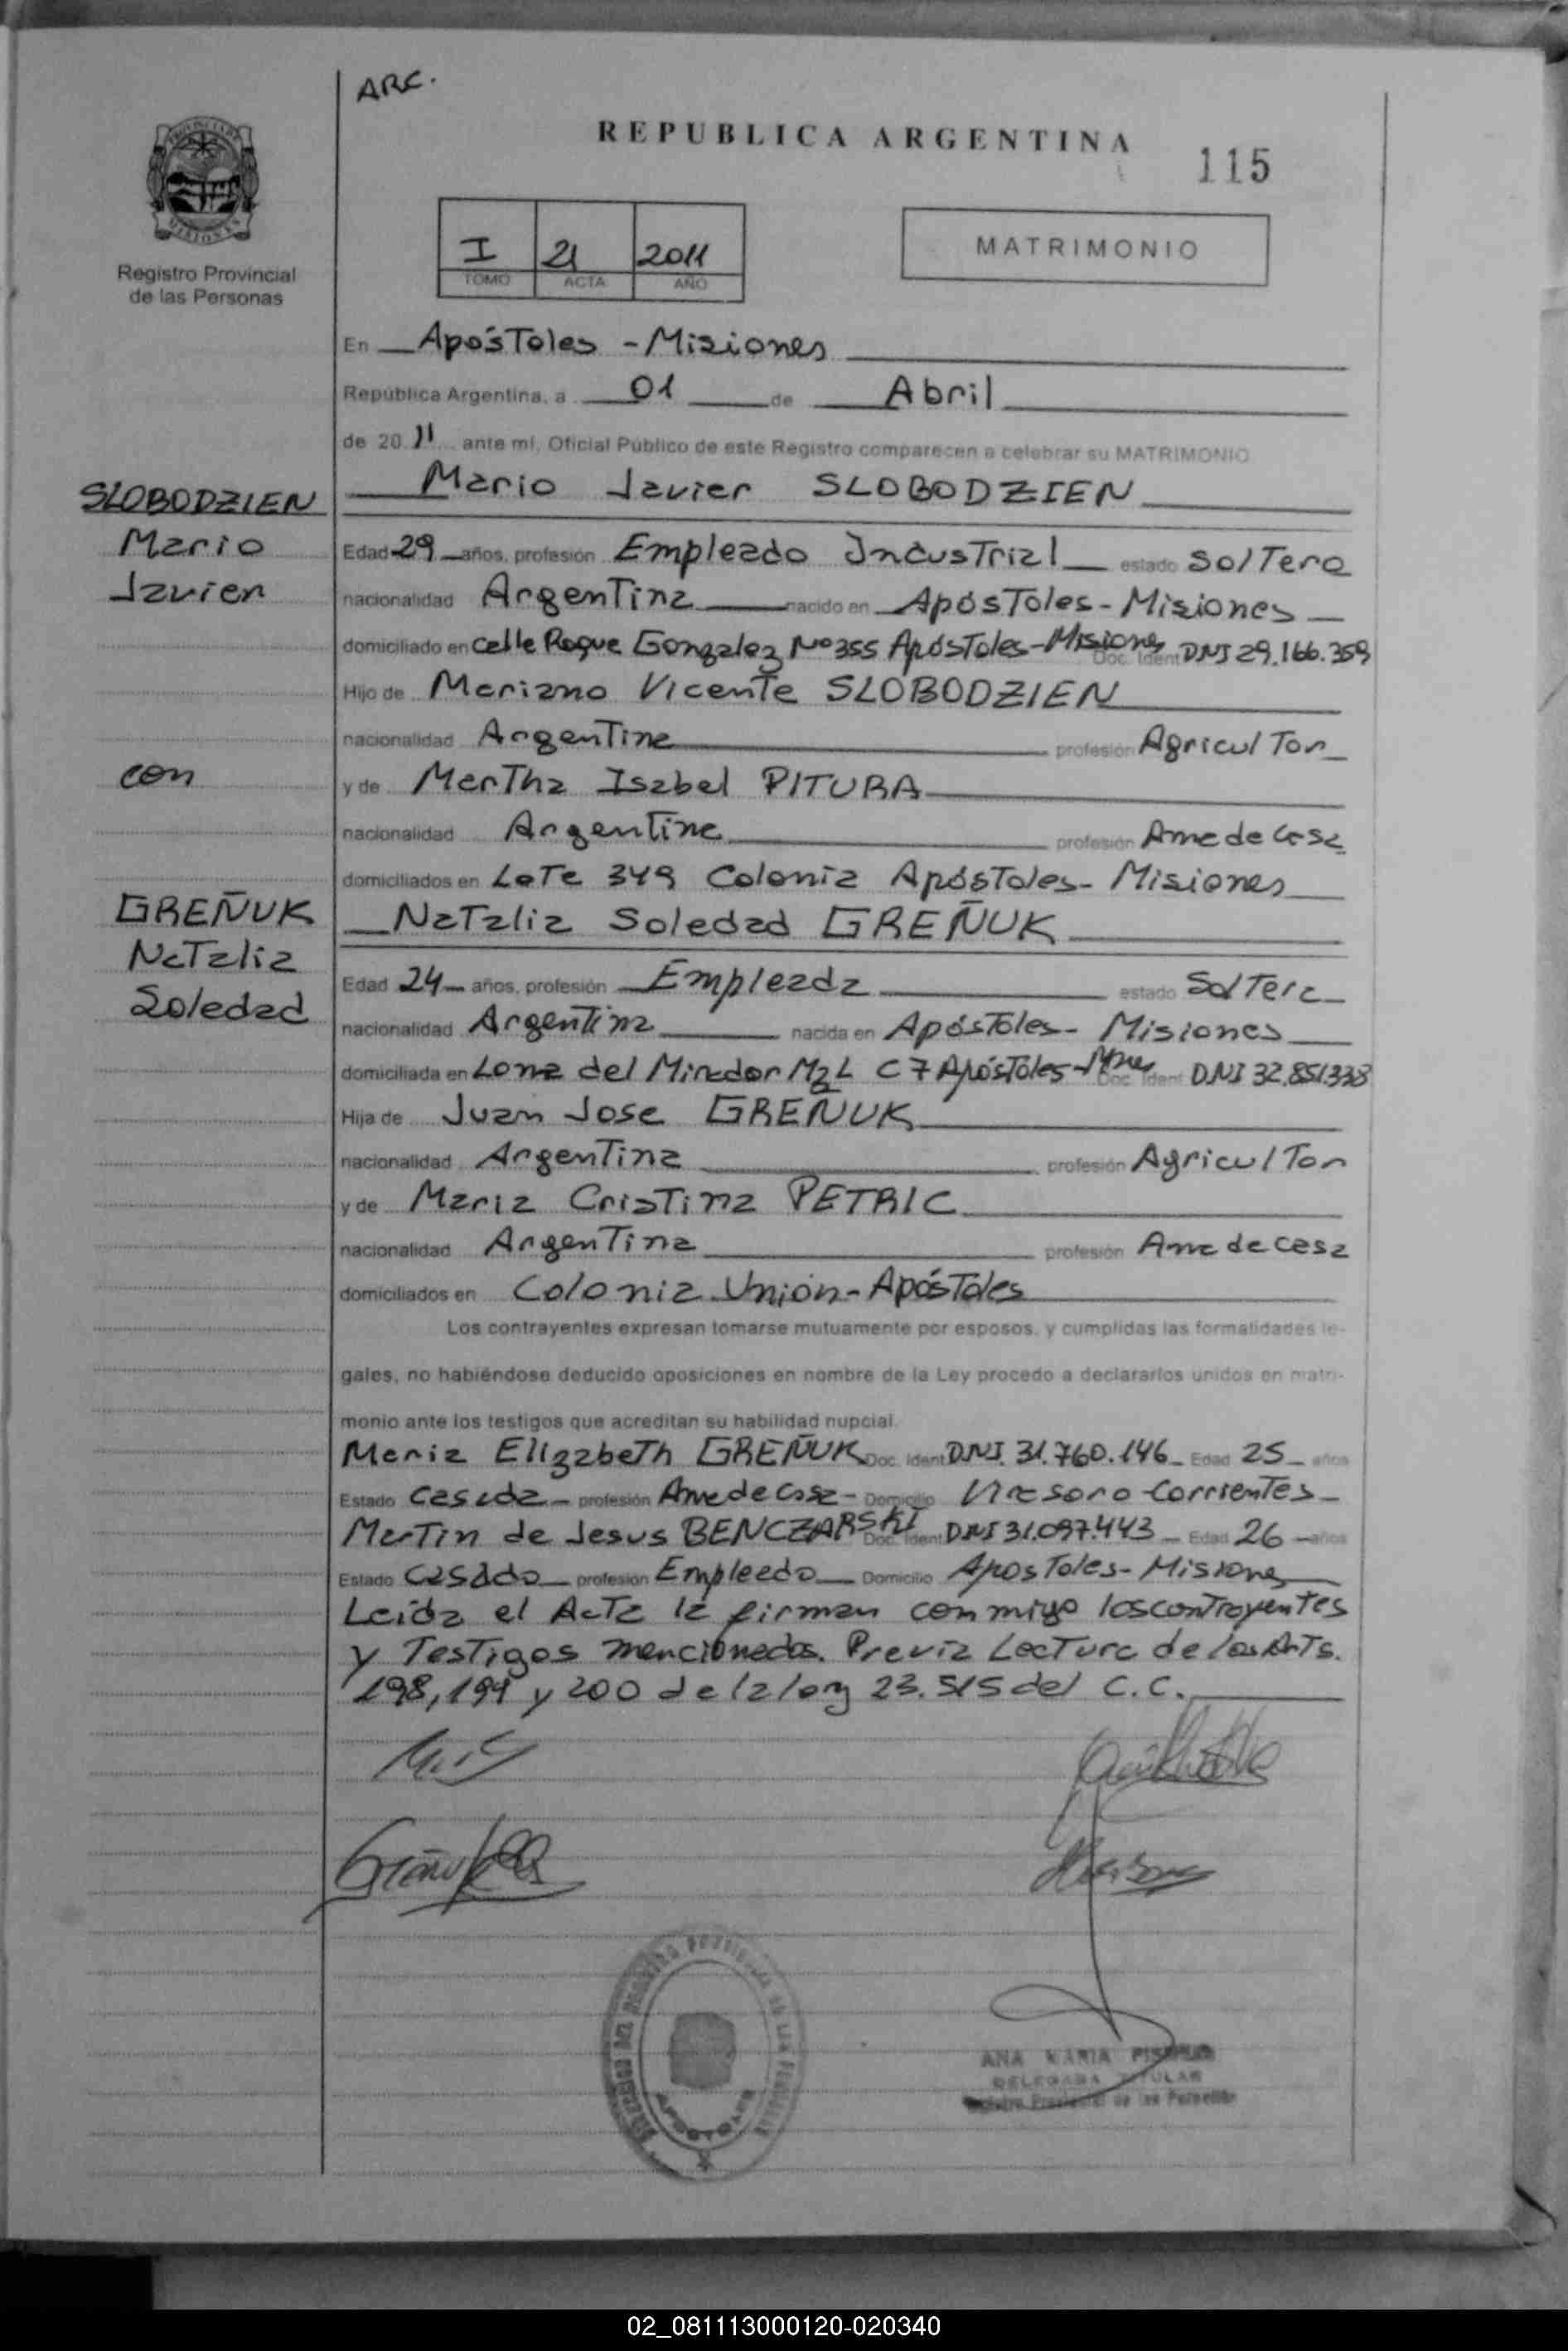 ARC.
REPUBLICA ARGENTINA
115
PROVINCIA DE
MISIONES
Registro Provincial
de las Personas
I 21 2011
TOMO ACTA AÑO
MATRIMONIO
En Apóstoles - Misiones
República Argentina, a 01 de Abril
de 2011 ante mí, Oficial Público de este Registro comparecen a celebrar su MATRIMONIO
Mario Javier SLOBODZIEN
SLOBODZIEN
Mario
Javier
con
GREÑUK
Natalia
Soledad
Edad 29 años, profesión Empleado Industrial estado Soltero
nacionalidad Argentina nacido en Apóstoles - Misiones
domiciliado en calle Roque Gonzalez Nº 355 Apóstoles - Misiones Doc. Ident DNI 29.166.359
Hijo de Mariano Vicente SLOBODZIEN
nacionalidad Argentina profesión Agricultor
y de Martha Isabel PITURA
nacionalidad Argentina profesión Ama de casa
domiciliados en Lote 349 Colonia Apóstoles - Misiones
Natalia Soledad GREÑUK
Edad 24 años, profesión Empleada estado Soltera
nacionalidad Argentina nacida en Apóstoles - Misiones
domiciliada en Loma del Mirador Mz L C 7 Apóstoles - Mnes Doc. Ident DNI 32.851.338
Hija de Juan Jose GREÑUK
nacionalidad Argentina profesión Agricultor
y de Maria Cristina PETRIC
nacionalidad Argentina profesión Ama de casa
domiciliados en Colonia Unión - Apóstoles
Los contrayentes expresan tomarse mutuamente por esposos, y cumplidas las formalidades le-
gales, no habiéndose deducido oposiciones en nombre de la Ley procedo a declararlos unidos en matri-
monio ante los testigos que acreditan su habilidad nupcial.
Maria Elizabeth GREÑUK Doc. Ident DNI. 31.760.146 Edad 25 años
Estado Casada profesión Ama de casa - Domicilio Virasoro - Corrientes
Martin de Jesus BENCZARSKI Doc. Ident DNI 31.097.443 Edad 26 años
Estado Casado profesión Empleado Domicilio Apostoles - Misiones
Leida el Acta la firman conmigo los contrayentes
y Testigos mencionados. Previa Lectura de los Arts.
198, 199 y 200 de la ley 23.515 del C.C.
ANA MARIA
DELEGADA TITULAR
Registro Provincial de las Personas
APOSTOLES
02_081113000120-020340